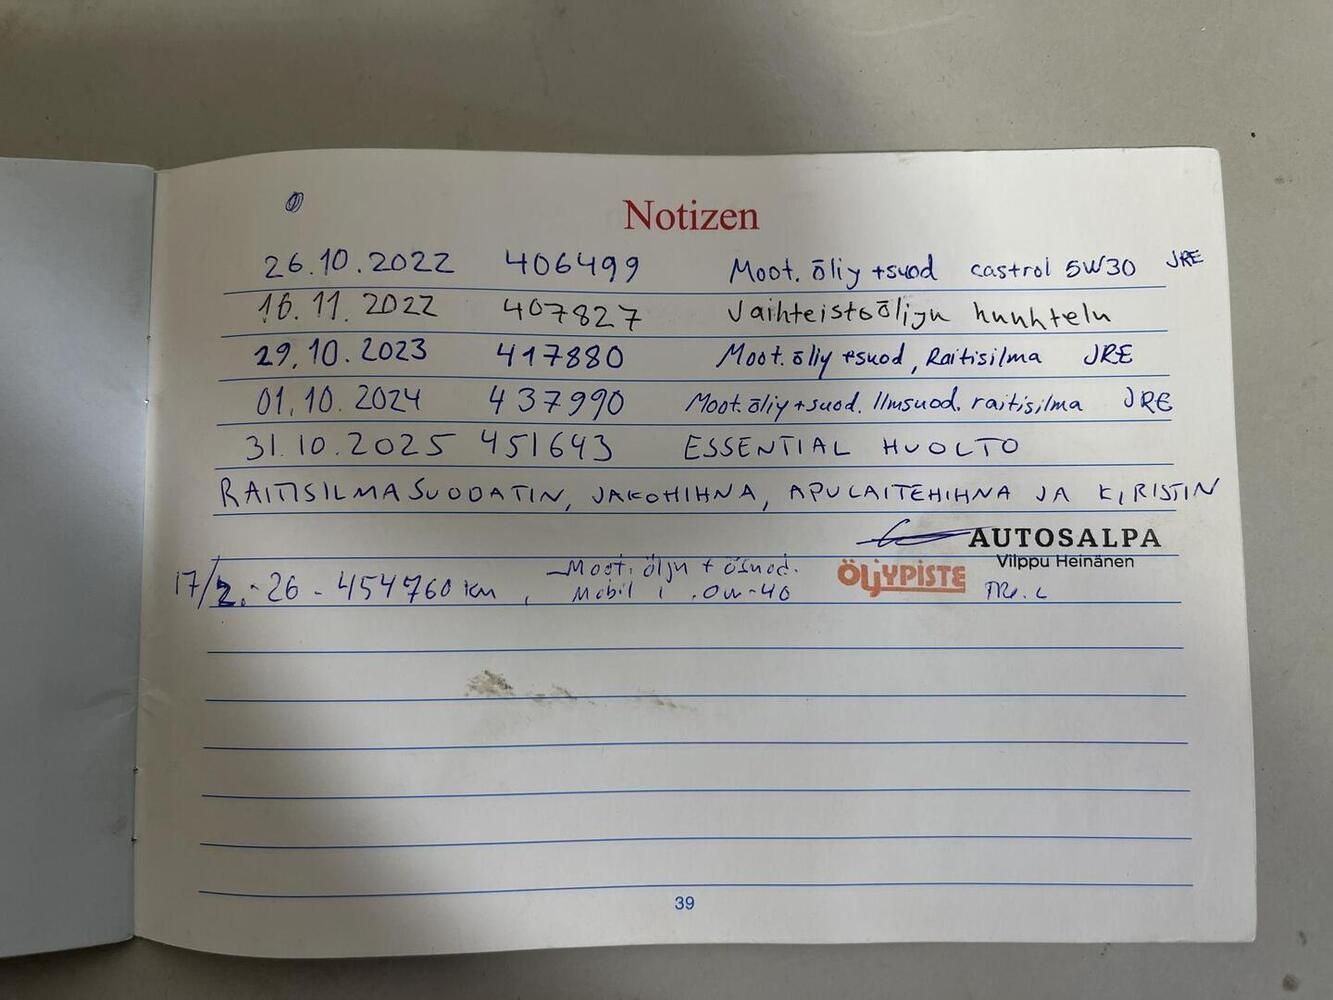 Notizen
26.10.2022 406499 Moot. öliy +suod castrol 5W30 JRE
16.11.2022 407827 Vaihteistoöljyn huuhtelu
29.10.2023 417880 Moot. öliy +suod, Raitisilma JRE
01.10.2024 437990 Moot. öliy +suod. Ilmsuod. raitisilma JRE
31.10.2025 451643 ESSENTIAL HUOLTO
RAITISILMASUODATIN, JAKOHIHNA, APULAITEHIHNA JA KIRISTIN
AUTOSALPA
Vilppu Heinänen
17/2.-26 - 454760 km, Moot. öljy + ösuod.
Mobil 1 0w-40
ÖLJYPISTE
39